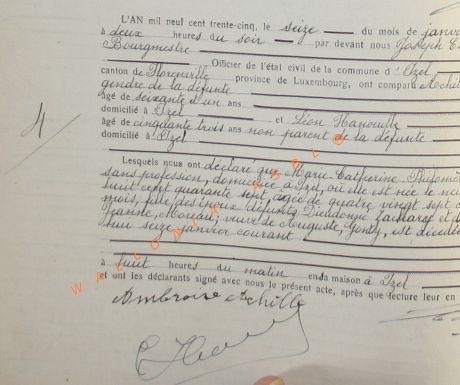 L'AN mil neuf cent trente-cinq, le seize du mois de janvi
à deux heures du soir par devant nous Joseph
Bourgmestre
Officier de l'état civil de la commune d' Izel
canton de Florenville province de Luxembourg, ont comparu Achil
gendre de la défunte
âgé de soixante d'un ans
domicilié à Izel et Léon Hanouille
âgé de cinquante trois ans non parent de la défunte
domicilié à Izel
4
Lesquels nous ont déclaré que Marie-Catherine
sans profession, domiciliée à Izel, où elle est née le
huit cent quarante sept, âgée de quatre vingt sept
mois, fille des époux défunts Dieudonné et
Jeanne, veuve de Auguste est décédée
hui seize janvier courant
à huit heures du matin en sa maison à Izel
et ont les déclarants signé avec nous le présent acte, après que lecture leur en
Ambroise Achille
WALLONIA ASBL ©